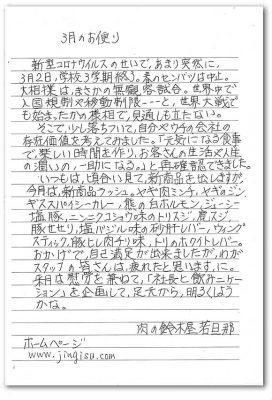 3月のお便り
新型コロナウイルスのせいで、あまり突然に、
3月2日,学校3学期終り。春のセンバツは中止。
大相撲は、まさかの無観客試合。世界中で
入国規制や移動制限---と、世界大戦で
も始まったかの様相で,見通しも立たない。
そこで,少し落ちついて,自分やウチの会社の
存在価値を考えてみました。「元気になる食事
で、楽しい時間を作り、お客さんの生活や人生
の潤いの,一助になる」と再確認できました。
いつもは、頃合い見て、新商品を出しますが
今月は、新商品ラッシュ。ヤギ肉ミンチ、ヤギのジン
ギススパイシーカレー,熊の白ホルモン,ジューシー
塩豚、ニンニクコショウ味のトリスジ,鹿スジ,
豚せせり,塩バジル味の砂肝レバー,ウィング
スティック,豚ヒレ肉チリ味,トリのホワイトレバー。
おかげで,自己満足が出来ましたが,わが
スタッフの皆さんは,疲れたと思います,に。
来月は慰労を兼ねて,「社長と飲みニケー
ション」を企画して,足元から,明るくしよう
かな。
肉の鈴木屋 若旦那
ホームページ
www.jingisu.com